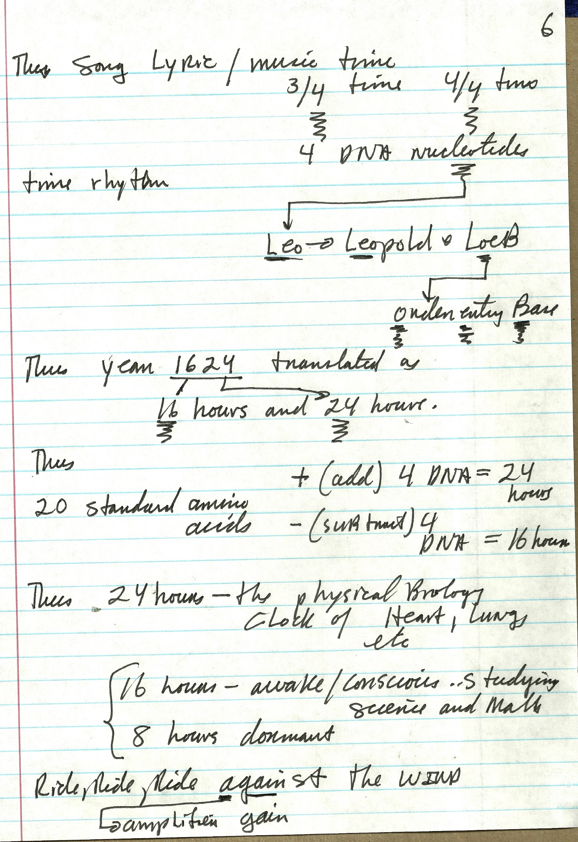 6
Thus Song Lyric / music time
3/4 time 4/4 time
4 DNA nucleotides
time rhythm
Leo → Leopold o LoeB
Orden entry Base
Thus year 1624 translated as
16 hours and 24 hours.
Thus
+ (add) 4 DNA = 24
hours
20 standard amino
acids
- (subtract) 4
DNA = 16 hours
Thus 24 hours - the physical Biology
Clock of Heart, Lungs
etc
16 hours - awake/conscious .. Studying
science and Math
8 hours dormant
Ride, Ride, Ride against the WIND
amplifier gain